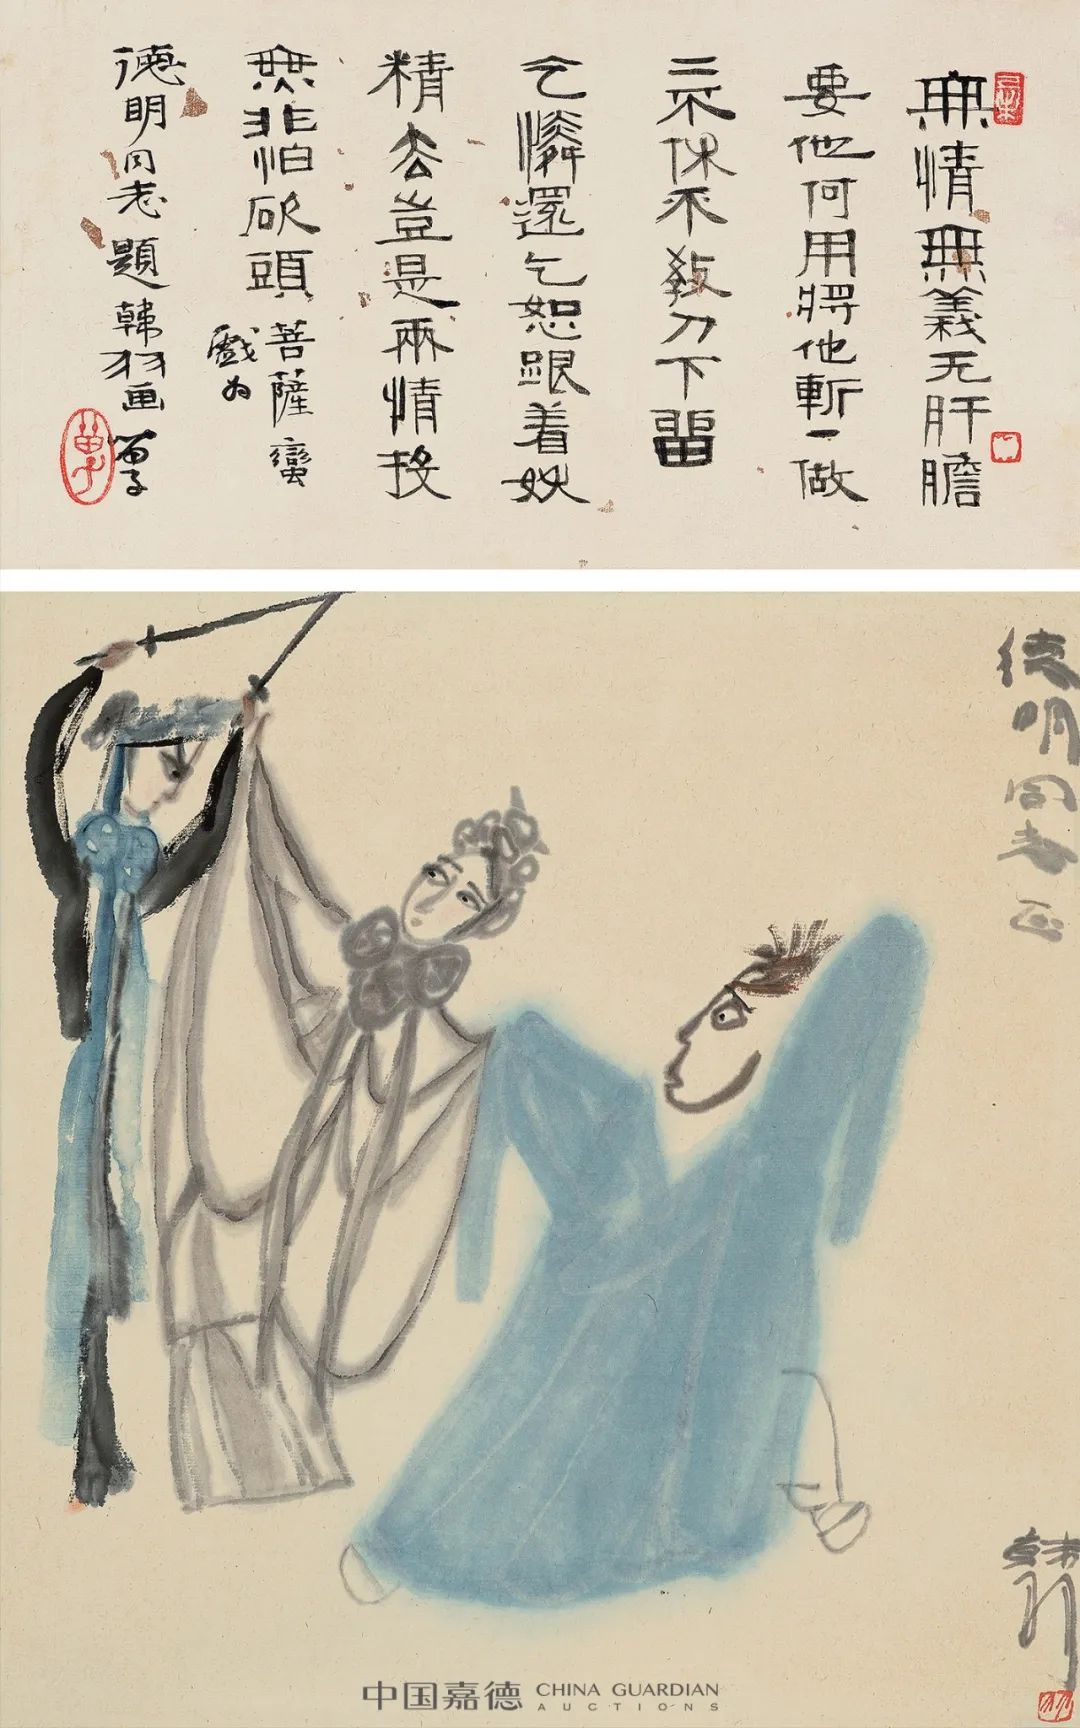 無情無義无肝膽
要他何用將他斬一做
二不休不教刀下畱
乞憐還乞恕跟着妖
精去豈是兩情投
無非怕砍頭 菩薩蠻
戲为
德明同志題韓羽画 苗子
苗子
德明同志正
韩羽
中国嘉德 CHINA GUARDIAN
AUCTIONS